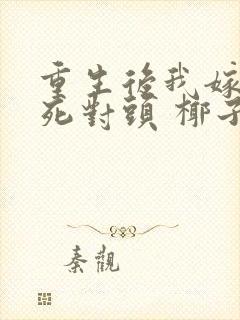 重生後我嫁
死對頭 椰子
秦觀